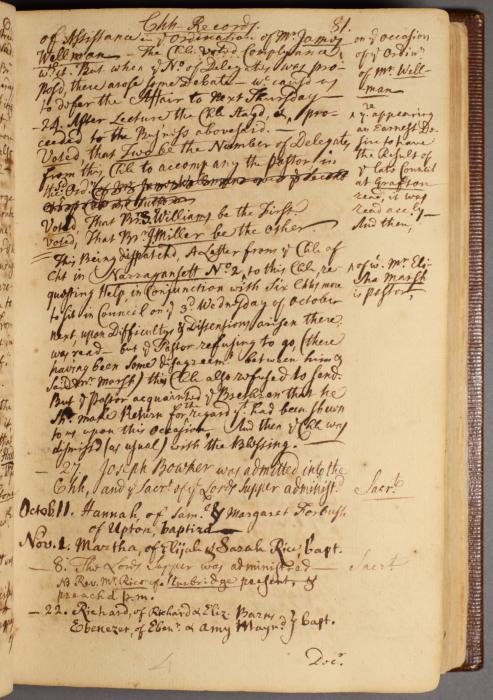 Chh Records. 81.
of Assistance in yᵉ Ordination of Mʳ James
Wellman — The Chh Voted Complyance
wᵗʰ it. But when yᵉ Nº of Delegates was pro-
pos'd, there arose some Debate — wᶜ caus'd us
to defer the Affair to next Thursday —
— 24. After Lecture the Chh Stay'd, & pro-
ceeded to the Business abovesaid. —
Voted, that Two be the Number of Delegates
from this Chh to accompany the Pastor in
the Ordⁿ
Voted, That Bʳ Williams be the First.
Voted, That Bʳ Miller be the Other.
This Being dispatch'd, A Letter from yᵉ Chh of
Cht in Narragansett Nº 2, to this Chh, re-
questing Help in Conjunction with Six Chhs more
to sit in Council on yᵉ 3ᵈ Wednesday of October
next, upon Difficultys & Dissensions arisen there,
was read — but yᵉ Pastor refusing to go, (there
having been some disagreemᵗ between him &
said Mʳ Marsh) this Chh also refused to send.
But yᵉ Pastor acquainted yᵉ Brethren that he
Shᵈ make Return for the regard yᵗ had been shewn
to us upon this Occasion. And then yᵉ Chh was
dismiss'd (as usual) with the Blessing.
— 27. Joseph Bowker was admitted into the
Chh, and yᵉ Sacrᵗ of yᵉ Lords Supper administᵈ
Octob. 11. Hannah, of Samˡ & Margaret Forbush
of Upton, baptizd
Nov. 1. Martha, of Elijah & Sarah Rice, bapt.
— 8. The Lords Supper was administered —
NB Revᵈ Mʳ Rice of Sturbridge present, &
preach'd p.m.
— 22. Richard, of Richard & Eliz. Barns } bapt.
Ebenezer, of Ebenʳ & Amy Maynᵈ
Decʳ.
on yᵉ occasion
of yᵉ Ordinⁿ
of Mʳ Well-
man —
yᵉ appearing
an Earnest De-
sire to have
the Result of
yᵉ late Council
at Grafton
read, it was
read acc.ʸ
And then,
of wᶜ Mʳ Eli-
sha Marsh
is Pastor,
Sacrᵗ
Sacrᵗ